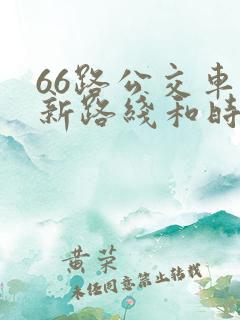 66路公交车
新路綫和时
黄荣
未经同意禁止转载